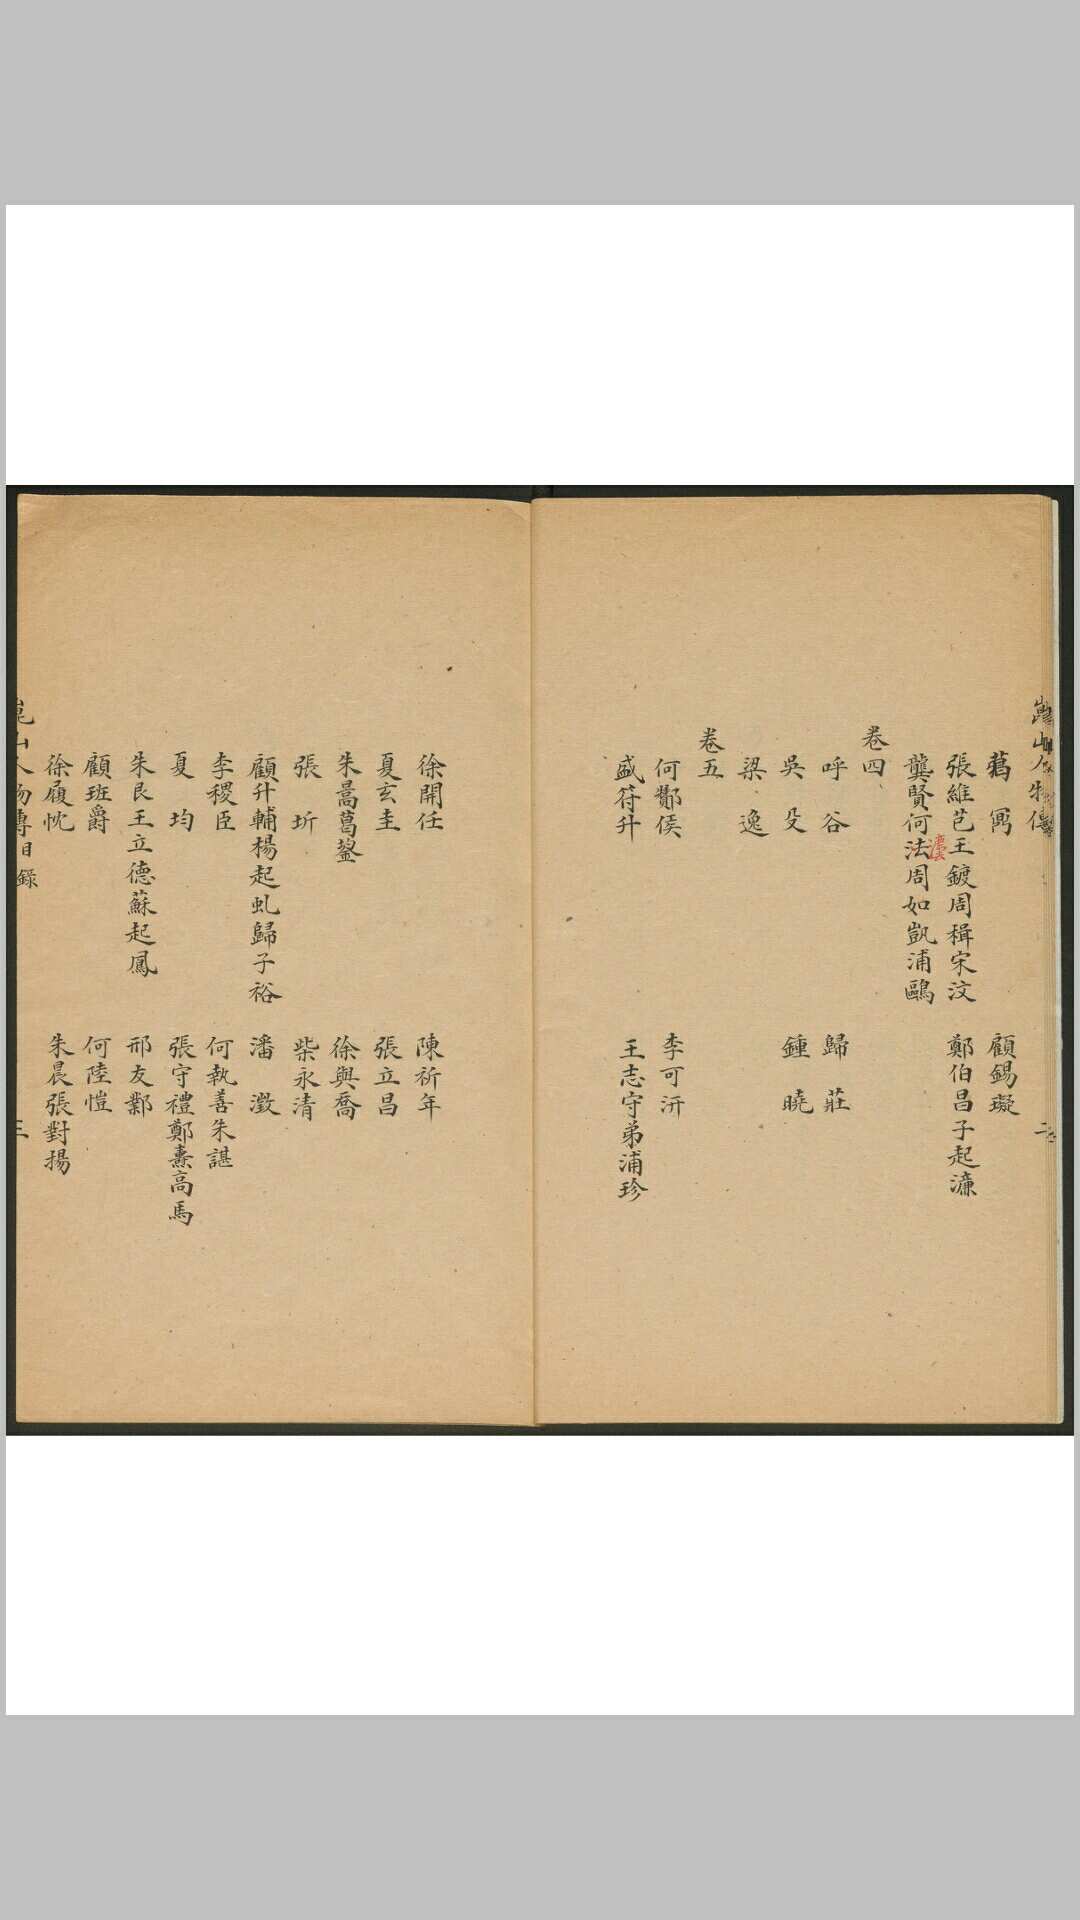 崑山人物傳
顧錫㻢
張維芑王鍍周稷宋汶 鄭伯昌子起濂
龔賢何法周如凱浦鷗
濃
卷四
呼谷 歸莊
吳殳 鍾曉
梁逸
卷五
何鄺侯 李可汧
盛符升 王志守弟浦珍
徐開任 陳祈年
夏玄圭 張立昌
朱暠 徐與喬
張圻 柴永清
顧升輔楊起虬歸子裕 潘澂
李稷臣 何執善朱諶
夏均 張守禮鄭燾高馬
朱艮王立德蘇起鳳 邢友鄴
顧班爵 何陸愷
徐履忱 朱晨張對揚
崑山人物傳目錄 三